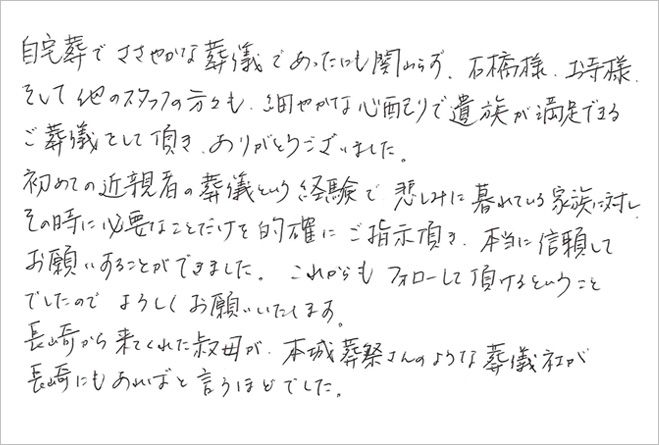 自宅葬でささやかな葬儀であったにも関わらず、石橋様、古寺様、
そして他のスタッフの方々も、細やかな心配りで遺族が満足できる
ご葬儀をして頂き、ありがとうございました。
初めての近親者の葬儀という経験で悲しみに暮れている家族に対し、
その時に必要なことだけを的確にご指示頂き、本当に信頼して
お願いすることができました。これからもフォローして頂けるということ
でしたのでよろしくお願いいたします。
長崎から来てくれた叔母が、本城葬祭さんのような葬儀社が
長崎にもあればと言うほどでした。